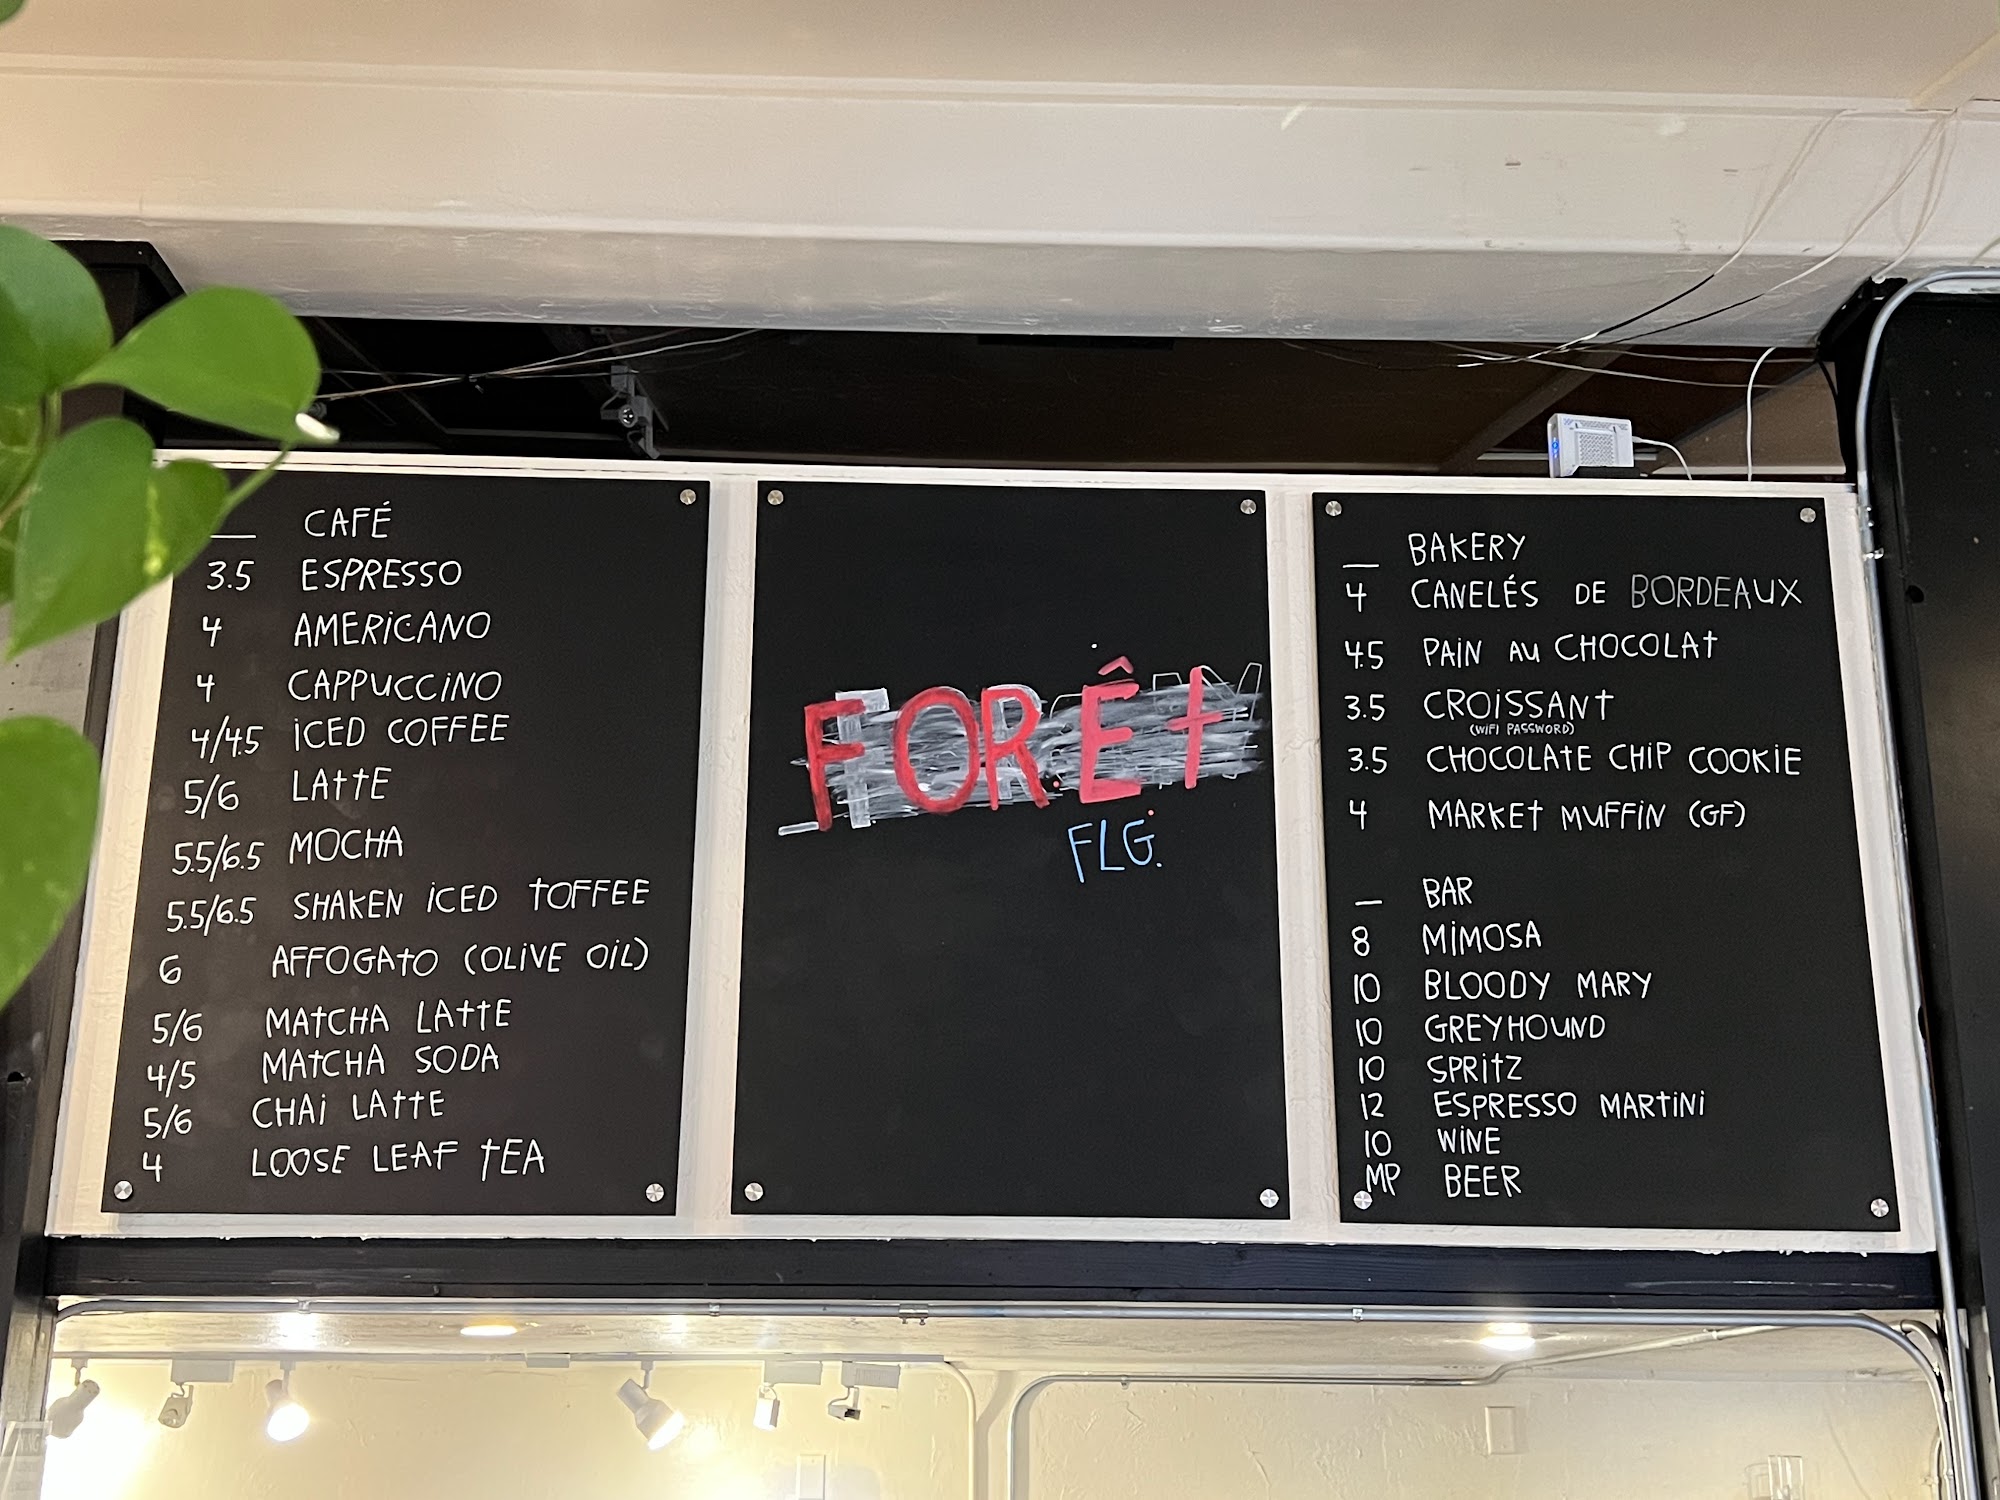 — CAFÉ
3.5 ESPRESSO
4 AMERICANO
4 CAPPUCCINO
4/4.5 ICED COFFEE
5/6 LATTE
5.5/6.5 MOCHA
5.5/6.5 SHAKEN ICED TOFFEE
6 AFFOGATO (OLIVE OIL)
5/6 MATCHA LATTE
4/5 MATCHA SODA
5/6 CHAI LATTE
4 LOOSE LEAF TEA
FORÊT
FLG.
— BAKERY
4 CANELÉS DE BORDEAUX
4.5 PAIN AU CHOCOLAT
3.5 CROISSANT
(WIFI PASSWORD)
3.5 CHOCOLATE CHIP COOKIE
4 MARKET MUFFIN (GF)
— BAR
8 MIMOSA
10 BLOODY MARY
10 GREYHOUND
10 SPRITZ
12 ESPRESSO MARTINI
10 WINE
MP BEER